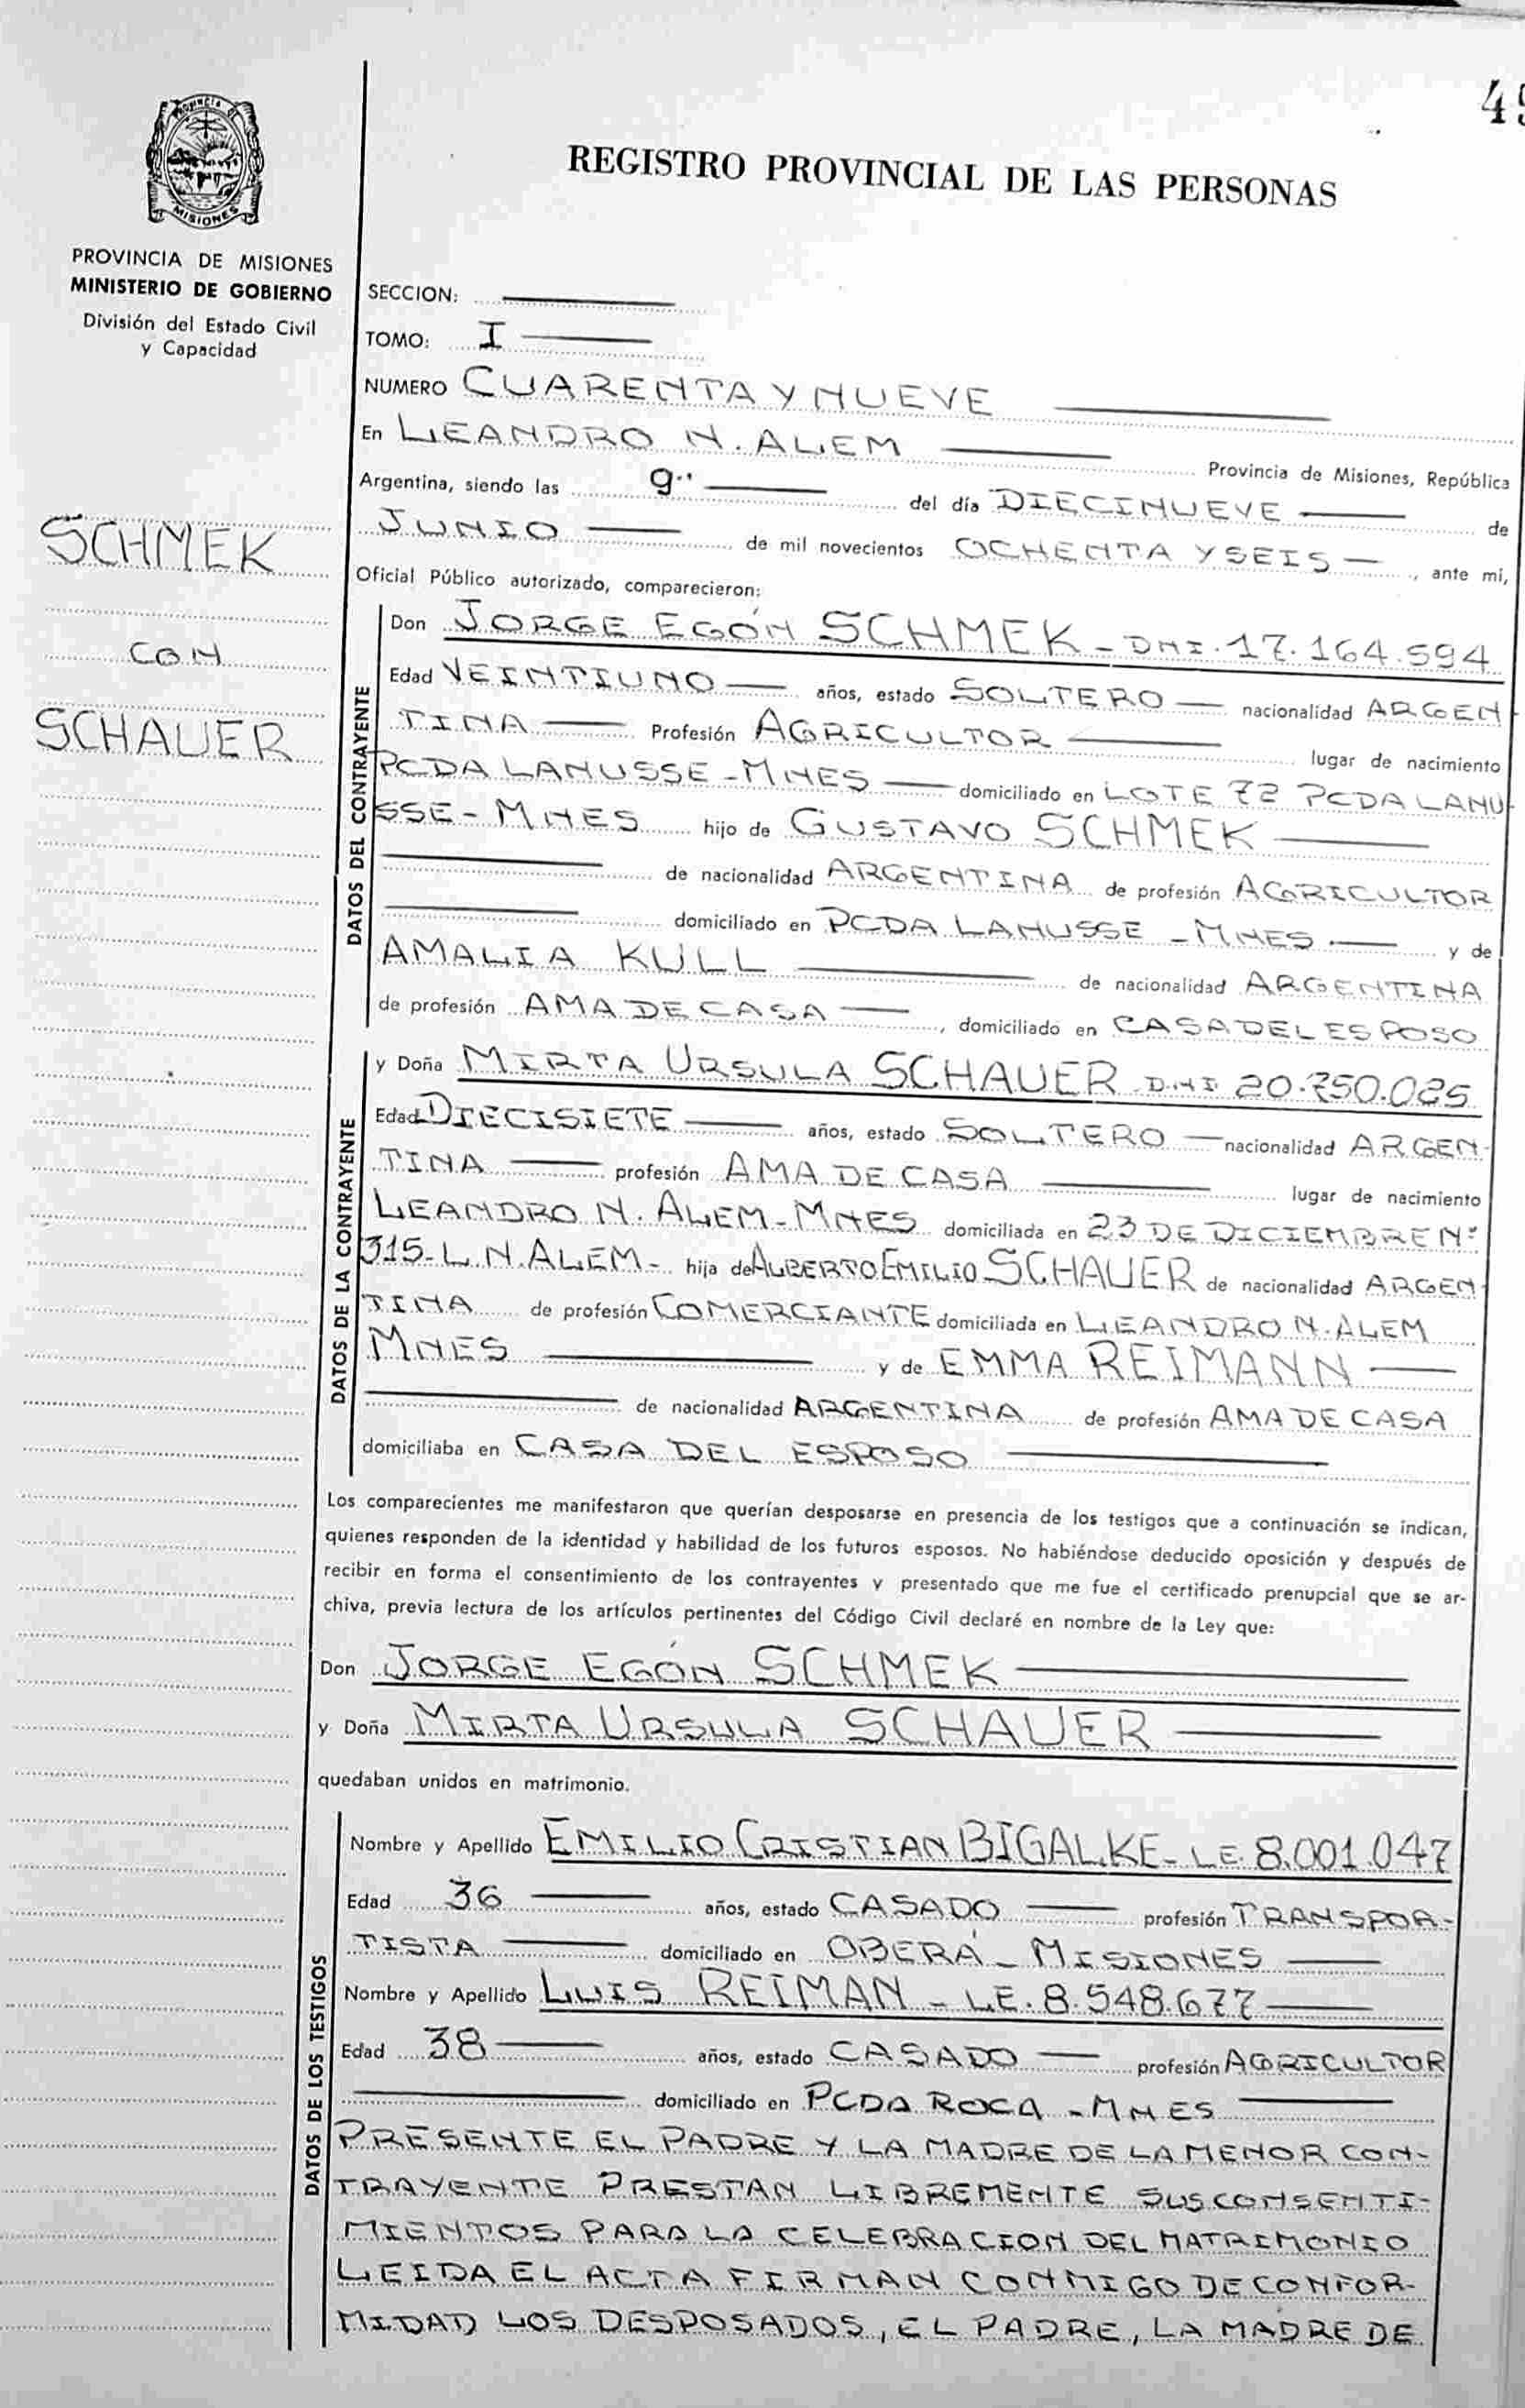 49
PROVINCIA DE
MISIONES
REGISTRO PROVINCIAL DE LAS PERSONAS
PROVINCIA DE MISIONES
MINISTERIO DE GOBIERNO
División del Estado Civil
y Capacidad
SECCION:
TOMO: I
NUMERO CUARENTA Y NUEVE
En LEANDRO N. ALEM Provincia de Misiones, República
Argentina, siendo las 9 del día DIECINUEVE de
JUNIO de mil novecientos OCHENTA Y SEIS, ante mi,
Oficial Público autorizado, comparecieron:
SCHMEK
CON
SCHAUER
DATOS DEL CONTRAYENTE
Don JORGE EGÓN SCHMEK - DNI. 17.164.594
Edad VEINTIUNO años, estado SOLTERO nacionalidad ARGEN
TINA Profesión AGRICULTOR lugar de nacimiento
PCDA LANUSSE - MNES domiciliado en LOTE 72 PCDA LANU
SSE - MNES hijo de GUSTAVO SCHMEK
de nacionalidad ARGENTINA de profesión AGRICULTOR
domiciliado en PCDA LANUSSE - MNES. y de
AMALIA KULL de nacionalidad ARGENTINA
de profesión AMA DE CASA, domiciliado en CASA DEL ESPOSO
DATOS DE LA CONTRAYENTE
y Doña MIRTA URSULA SCHAUER DNI 20.750.025
Edad DIECISIETE años, estado SOLTERO nacionalidad ARGEN-
TINA profesión AMA DE CASA lugar de nacimiento
LEANDRO N. ALEM - MNES domiciliada en 23 DE DICIEMBRE Nº
315 - L.N. ALEM - hija de ALBERTO EMILIO SCHAUER de nacionalidad ARGEN-
TINA de profesión COMERCIANTE domiciliada en LEANDRO N. ALEM
MNES y de EMMA REIMANN
de nacionalidad ARGENTINA de profesión AMA DE CASA
domiciliaba en CASA DEL ESPOSO
Los comparecientes me manifestaron que querían desposarse en presencia de los testigos que a continuación se indican,
quienes responden de la identidad y habilidad de los futuros esposos. No habiéndose deducido oposición y después de
recibir en forma el consentimiento de los contrayentes y presentado que me fue el certificado prenupcial que se ar-
chiva, previa lectura de los artículos pertinentes del Código Civil declaré en nombre de la Ley que:
Don JORGE EGÓN SCHMEK
y Doña MIRTA URSULA SCHAUER
quedaban unidos en matrimonio.
DATOS DE LOS TESTIGOS
Nombre y Apellido EMILIO CRISTIAN BIGALKE - LE. 8.001.047
Edad 36 años, estado CASADO profesión TRANSPOR-
TISTA domiciliado en OBERÁ - MISIONES
Nombre y Apellido LUIS REIMAN - LE. 8.548.677
Edad 38 años, estado CASADO profesión AGRICULTOR
domiciliado en PCDA ROCA - MNES
PRESENTE EL PADRE Y LA MADRE DE LA MENOR CON-
TRAYENTE PRESTAN LIBREMENTE SUS CONSENTI-
MIENTOS PARA LA CELEBRACION DEL MATRIMONIO
LEIDA EL ACTA FIRMAN CONMIGO DE CONFOR-
MIDAD LOS DESPOSADOS, EL PADRE, LA MADRE DE